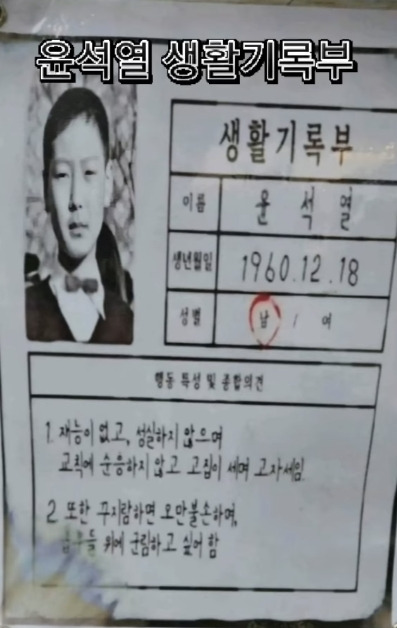 윤석열 생활기록부
생활기록부
이름 윤 석 열
생년월일 1960.12.18
성별 남 / 여
행동 특성 및 종합의견
1. 재능이 없고, 성실하지 않으며
교칙에 순응하지 않고 고집이 세며 고자세임
2. 또한 꾸지람하면 오만불손하며,
위에 군림하고 싶어 함